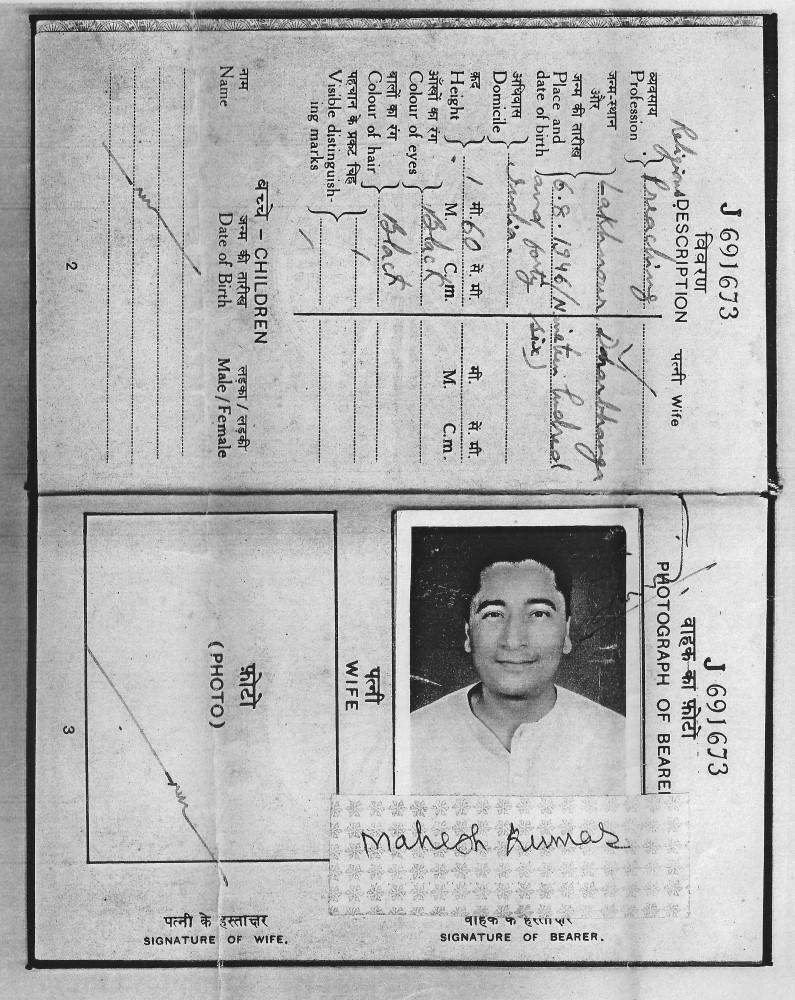 J 691673
विवरण
DESCRIPTION
पत्नी Wife
व्यवसाय
Profession
Religious Preaching
जन्म-स्थान
और
जन्म की तारीख
Place and
date of birth
Lakhnour, Darbhanga
6.8.1946 (Nineteen hundred
and forty six)
अधिवास
Domicile
India.
क़द
Height
1 मी. 60 सें. मी.
M. C.m.
मी. सें. मी.
M. C.m.
आँखों का रंग
Colour of eyes
Black
बालों का रंग
Colour of hair
Black
पहचान के प्रकट चिह्न
Visible distinguish-
ing marks
बच्चे – CHILDREN
नाम जन्म की तारीख लड़का / लड़की
Name Date of Birth Male / Female
2
J 691673
वाहक का फ़ोटो
PHOTOGRAPH OF BEARE
पत्नी
WIFE
फ़ोटो
(PHOTO)
3
Mahesh Kumar
पत्नी के हस्ताक्षर
SIGNATURE OF WIFE.
वाहक के हस्ताक्षर
SIGNATURE OF BEARER.